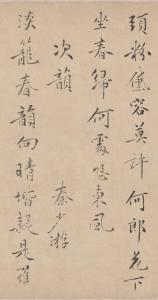 頭粉黛容莫許何郎花下
坐春歸何處東風
次韻 秦少游
淡籠春韻向晴堦疑是羅